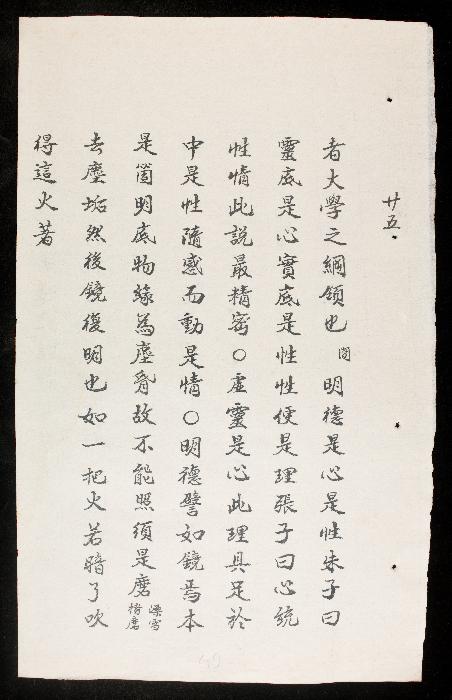 廿五
者大學之綱領也 問 明德是心是性朱子曰
靈底是心實底是性性便是理張子曰心統
性情此說最精密○虛靈是心此理具足於
中是性隨感而動是情○明德譬如鏡焉本
是箇明底物緣為塵昏故不能照須是磨
去塵垢然後鏡復明也如一把火若暗了吹
得這火著